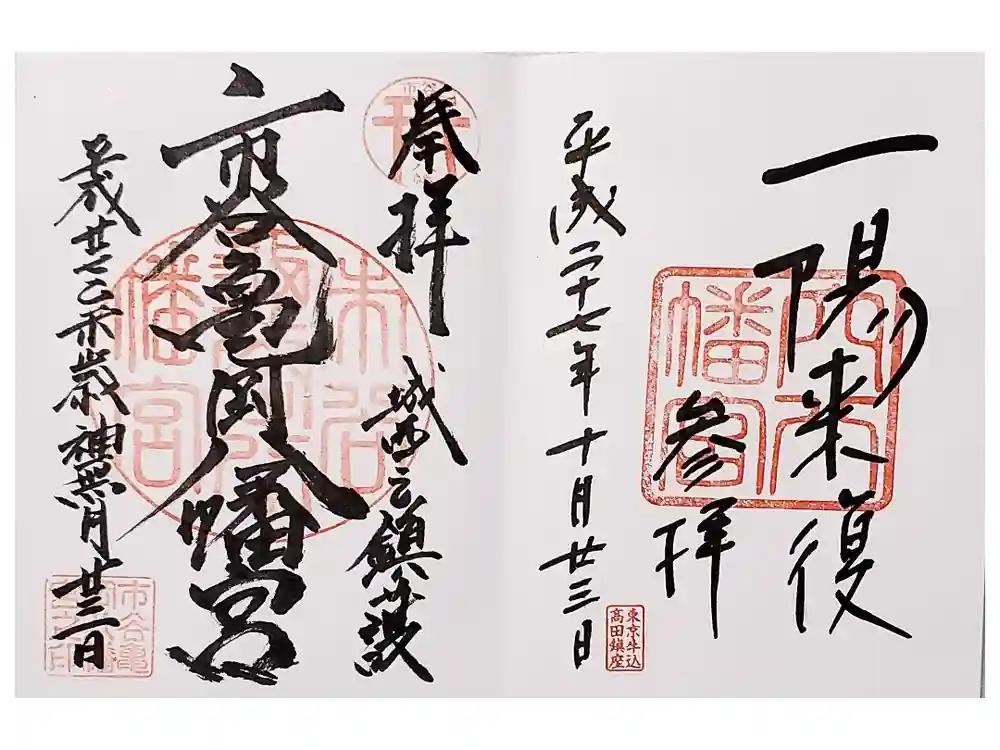 一陽来復
参拝
平成二十七年十月廿三日
東京牛込
高田鎮座
奉拝
城西之鎮護
市谷亀岡八幡宮
平成廿七乙未歳神無月廿三日